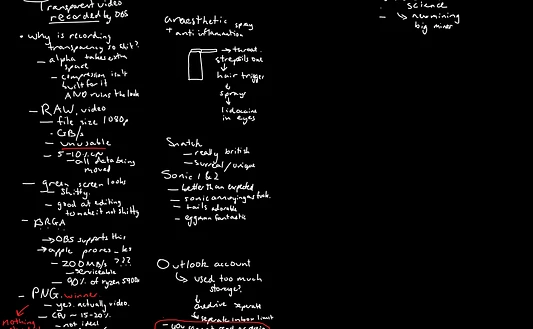 Transparent video
recorded by OBS
• Why is recording
transparency so shit?
- alpha takes extra
space
- compression isn't
built for it
AND ruins the look
- RAW video
- file size 1080p
- GB/s
- unusable
- 5-10% CPU
- all data being
moved
- green screen looks
shitty.
- good at editing
to make it not shitty
- BRGA
→ OBS supports this
→ apple prores
- 200MB/s ???
- serviceable
- 90% of ryzen 5900
- PNG. winner
- yes. actually video.
- CPU - 15-20%
- not ideal
Nothing
anaesthetic spray
+ anti inflammation
→ throat.
strepsils out
hair trigger
sprays
lidocaine
in eyes
Snatch
- really british
- surreal / unique
Sonic 1 & 2
- better than expected
- sonic annoying as fuck.
- tails adorable
- eggman fantastic
Outlook account
↳ used too much
storage?
onedrive separate
↳ separate inbox limit
science
- ↳ new mining
big miner